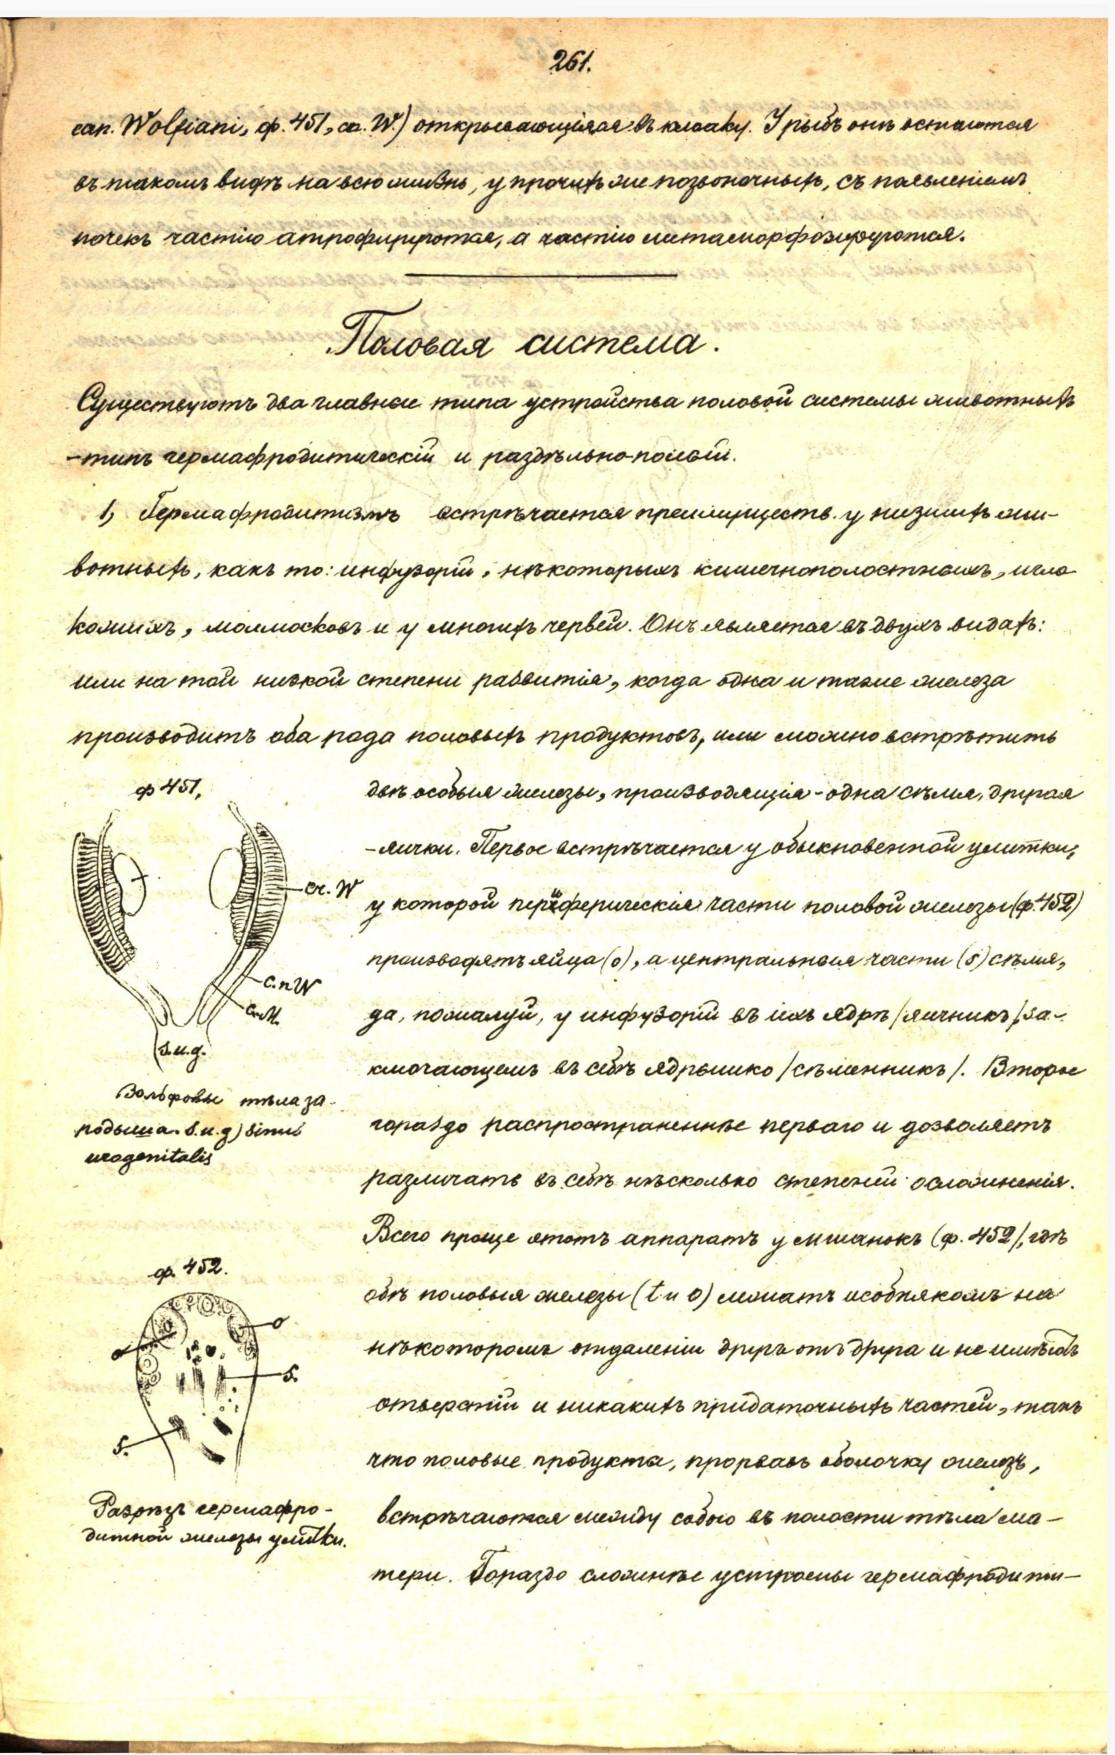 261.
can. Wolfiani, ф. 451, cc. W.) открывающіяся въ клоаку. У рыбъ онѣ остаются
въ такомъ видѣ на всю жизнь, у прочихъ же позвоночныхъ, съ появленіемъ
почекъ частію атрофируются, а частію метаморфозируются.
Половая система.
Существуютъ два главные типа устройства половой системы животныхъ
-типъ гермафродитическій и раздѣльно-полый.
1) Гермафродитизмъ встрѣчается преимуществ. у низшихъ жи-
вотныхъ, какъ то: инфузорій, нѣкоторыхъ кишечнополостныхъ, игло
кожихъ, моллюсковъ и у многихъ червей. Онъ является въ двухъ видахъ:
или на той низкой степени развитія, когда одна и таже железа
производитъ оба рода половыхъ продуктовъ, или можно встрѣтить
двѣ особыя железы, производящія - одна сѣмя, другая
- яички. Первое встрѣчается у обыкновенной улитки,
у которой периферическія части половой железы (ф. 452)
производятъ яйца (о), а центральныя части (s) сѣмя,
да, пожалуй, у инфузорій въ ихъ ядрѣ /яичникъ/, за-
ключающемъ въ себѣ ядрышко /сѣменникъ/. Второе
гораздо распространеннѣе перваго и дозволяетъ
различать въ себѣ нѣсколько степеней осложненія.
Всего проще этотъ аппаратъ у мшанокъ (ф. 452), гдѣ
обѣ половыя железы (t и o) лежатъ особнякомъ на
нѣкоторомъ отдаленіи другъ отъ друга и не имѣютъ
отверстій и никакихъ придаточныхъ частей, такъ
что половые продукта, прорвавъ оболочку железъ,
встрѣчаются между собою въ полости тѣла ма-
тери. Гораздо сложнѣе устроены гермафродити-
ф 451,
cr. W
c. n W
c. M.
s. u. g.
Вольфовы тѣла за-
родыша. s. u. g) sinus
urogenitalis
ф. 452.
o
o
s.
s.
Разрѣзъ гермафро-
дитной железы улитки.